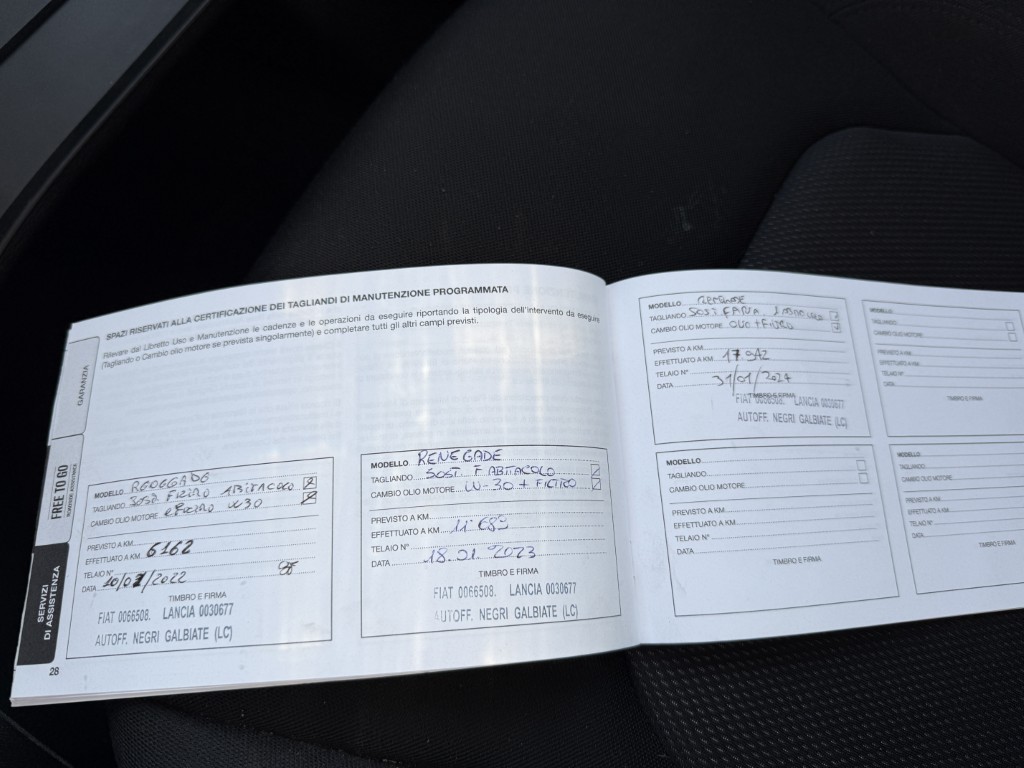 SPAZI RISERVATI ALLA CERTIFICAZIONE DEI TAGLIANDI DI MANUTENZIONE PROGRAMMATA
Rilevare dal Libretto Uso e Manutenzione le cadenze e le operazioni da eseguire riportando la tipologia dell'intervento da eseguire
(Tagliando o Cambio olio motore se prevista singolarmente) e completare tutti gli altri campi previsti.
GARANZIA
FREE TO GO
SERVIZI
DI ASSISTENZA
28
MODELLO RENEGADE
TAGLIANDO SOST FILTRO ABITACOLO
CAMBIO OLIO MOTORE e FILTRO W30
PREVISTO A KM
EFFETTUATO A KM 6162
TELAIO N°
DATA /2022
TIMBRO E FIRMA
FIAT 0066508. LANCIA 0030677
AUTOFF. NEGRI GALBIATE (LC)
MODELLO RENEGADE
TAGLIANDO SOST. F ABITACOLO
CAMBIO OLIO MOTORE W-30 + FILTRO
PREVISTO A KM
EFFETTUATO A KM
TELAIO N°
DATA 18.01.2023
TIMBRO E FIRMA
FIAT 0066508. LANCIA 0030677
AUTOFF. NEGRI GALBIATE (LC)
MODELLO
TAGLIANDO SOST F ARIA
CAMBIO OLIO MOTORE OLIO + FILTRO
PREVISTO A KM
EFFETTUATO A KM 17942
TELAIO N°
DATA 31/01/2024
TIMBRO E FIRMA
FIAT 0066508. LANCIA 0030677
AUTOFF. NEGRI GALBIATE (LC)
MODELLO
TAGLIANDO
CAMBIO OLIO MOTORE
PREVISTO A KM
EFFETTUATO A KM
TELAIO N°
DATA
TIMBRO E FIRMA
MODELLO
TAGLIANDO
CAMBIO OLIO MOTORE
PREVISTO A KM
EFFETTUATO A KM
TELAIO N°
DATA
TIMBRO E FIRMA
MODELLO
TAGLIANDO
CAMBIO OLIO MOTORE
PREVISTO A KM
EFFETTUATO A KM
TELAIO N°
DATA
TIMBRO E FIRMA